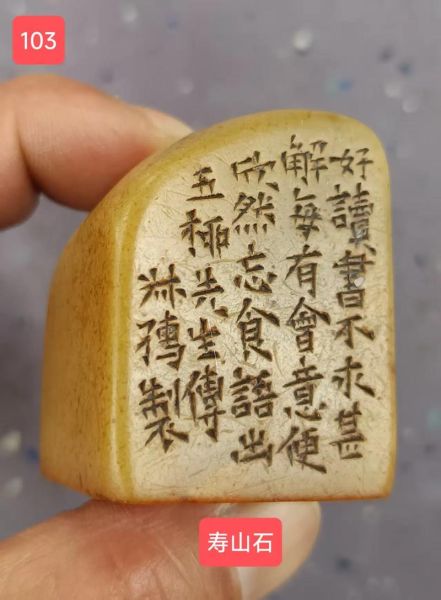 103
好讀書不求甚
解每有會意便
欣然忘食語出
五柳先生傳
製
寿山石